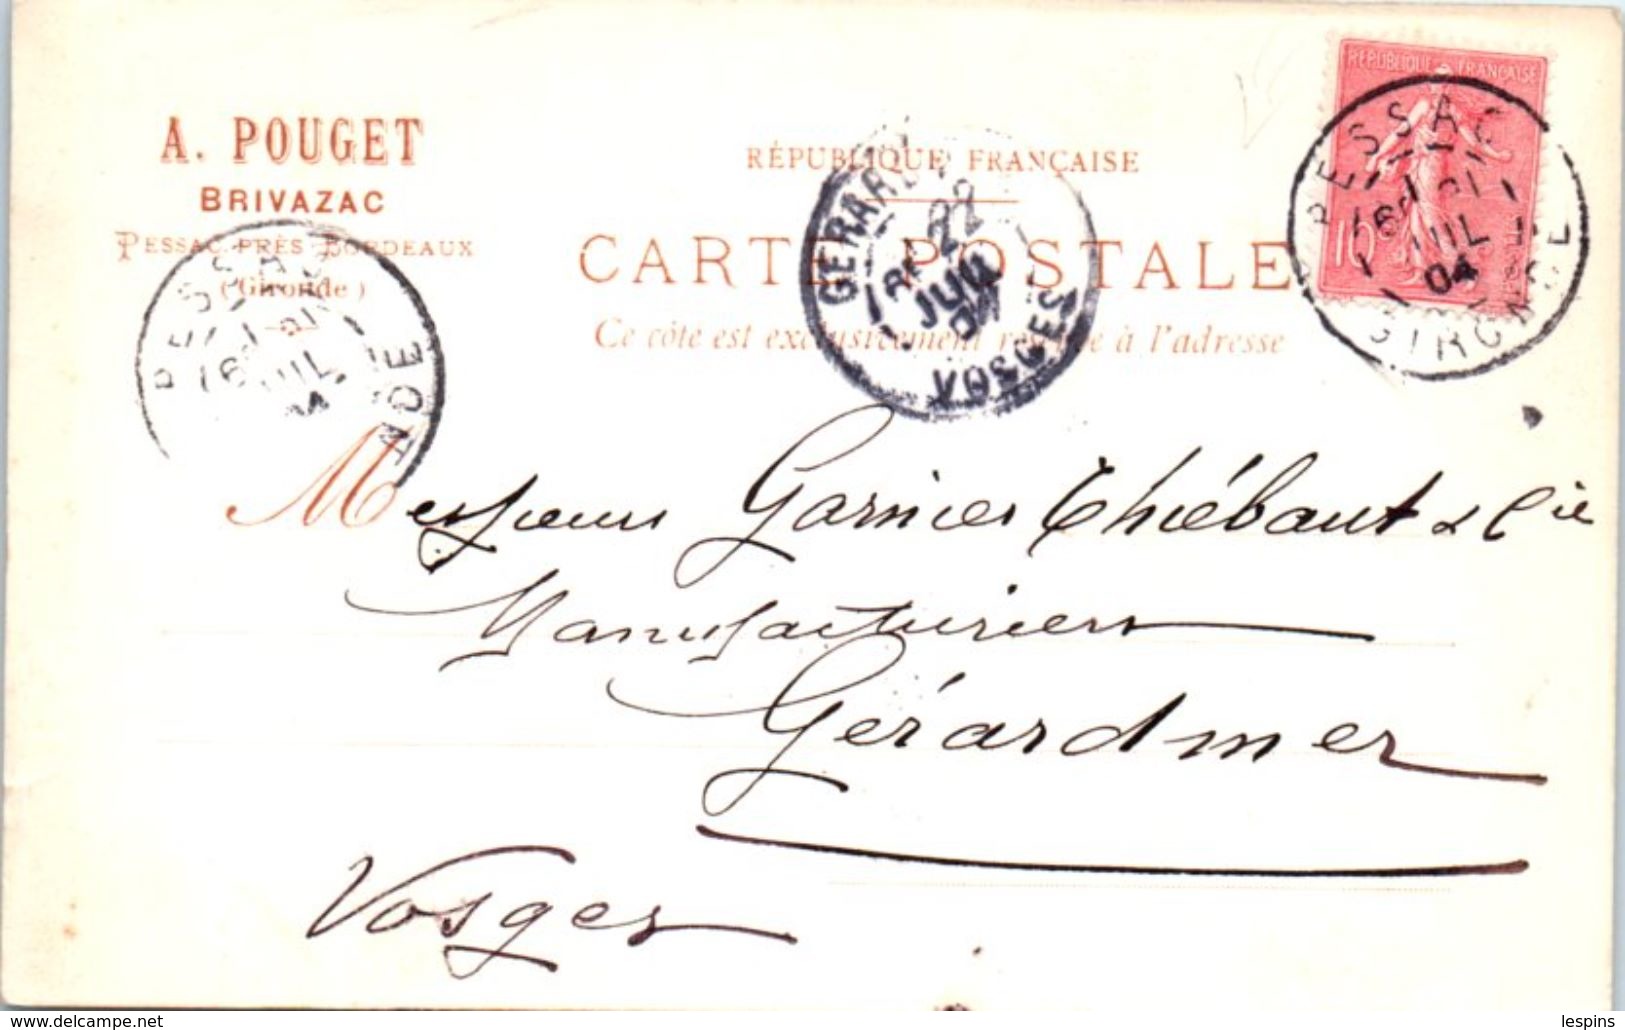 A. POUGET
BRIVAZAC
PESSAC PRÈS BORDEAUX
(Gironde)
RÉPUBLIQUE FRANÇAISE
CARTE POSTALE
Ce côté est exclusivement réservé à l'adresse
REPUBLIQUE FRANÇAISE
10c
PESSAC
21
JUIL
04
GIRONDE
GERARDMER
22
JUIL
04
VOSGES
PESSAC
JUIL
04
NDE
Messieurs Garnier Thiébaut & Cie
Manufacturiers
Gérardmer
Vosges
www.delcampe.net
lespins